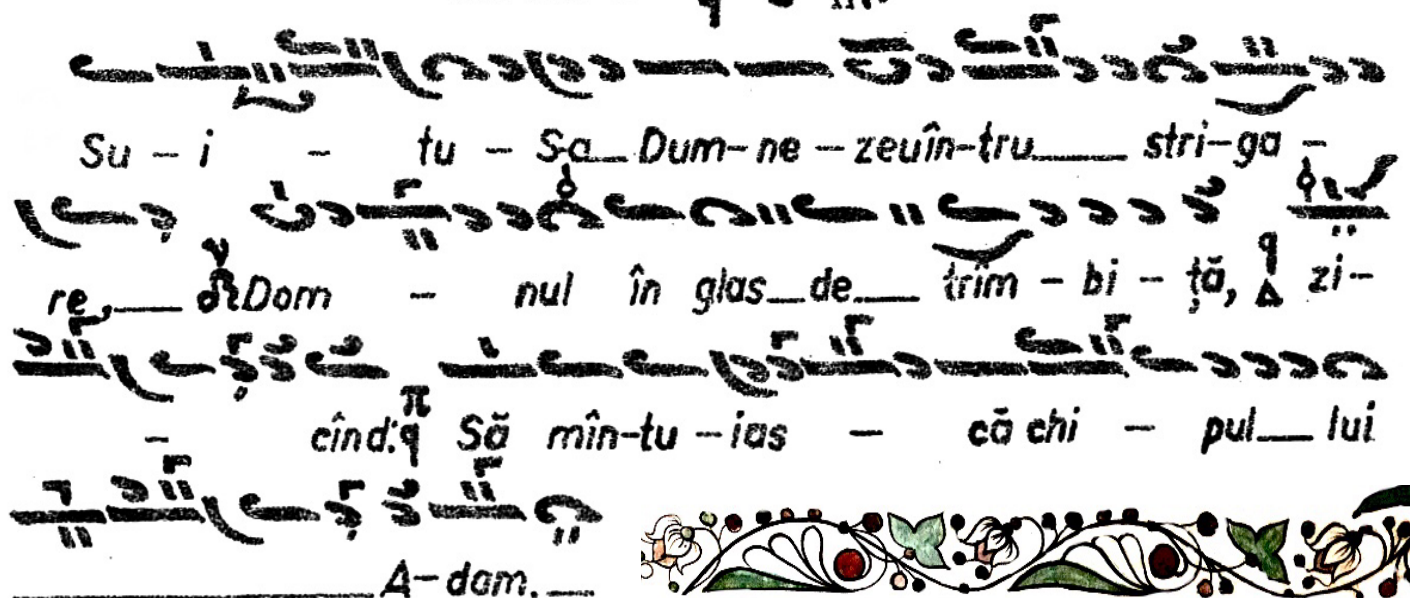 Su – i – tu – S-a Dum- ne – zeu în-tru stri-ga –
re, Dom – nul în glas de trîm – bi – ță, zi-
– cînd: Să mîn-tu – ias – că chi – pul lui
A-dam.